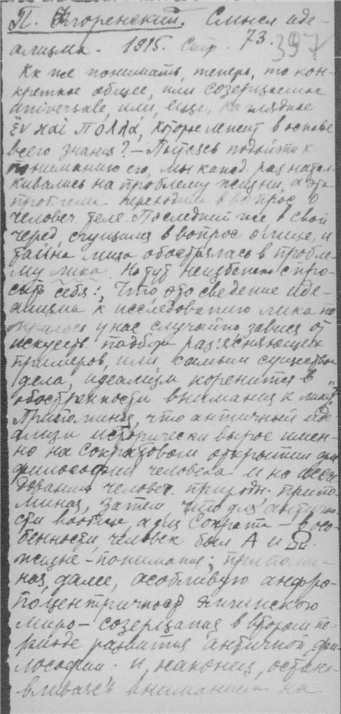 П. Флоренский. Смысл иде-
ализма. 1915. Стр. 73.
397
Как же понимать, теперь, то кон-
кретное общее, или созерцаемое
или, еще, наглядное
ἕν καὶ πολλά, которое лежит в основе
всего знания? – Пытаясь подойти к
пониманию его, мы кажд. раз натал-
кивались на проблему жизни, а эта
проблема переходила в вопрос о
человеч. теле. Последний же в свой
черед, сгущался в вопрос о лице, и
тайна лица обострялась в пробле-
му лика. Но тут неизбежно спро-
сить себя: Что это сведение иде-
ализма к исследованию лика по-
лучилось у нас случайно завися от
искусств. подбора раз'ясняющих
примеров, или самым существом
дела, идеализм коренится в
обостренности внимания к
Припоминая, что античный иде-
ализм исторически вырос имен-
но на Сократовом открытии для
философии человека и на иссле-
довании человеч. природы. Припо-
миная, затем, что для антично-
сти вообще, а для Сократа – в осо-
бенности, человек был Α и Ω
жизне-понимания; припоми-
ная, далее, особливую антро-
поцентричность эллинского
миро-созерцания в втором пе-
риоде развития античной фи-
лософии. и, наконец, остана-
вливаясь вниманием на